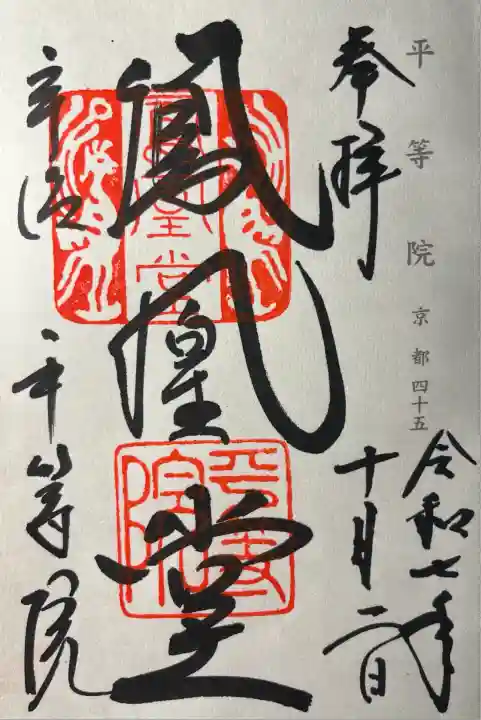 平等院 京都四十五
奉拝
令和七年
十月二日
鳳凰堂
宇治 平等院
鳳凰堂
平等院